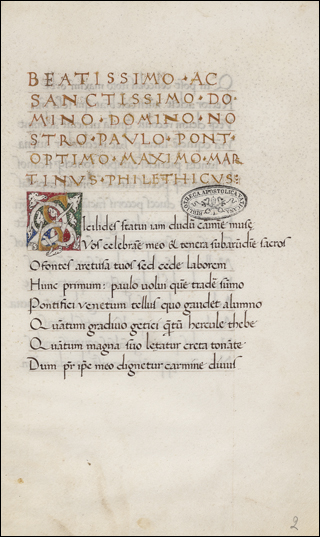 BEATISSIMO · AC
SANCTISSIMO · DO·
MINO · DOMINO · NO
STRO · PAVLO · PONT·
OPTIMO · MAXIMO · MAR
TINVS · PHILETHICVS:
Sicelides statum iam dudū carmē musę
Vos celebrate meo & tenera subarūdine sacros
O fontes aretusa tuos sed cede laborem
Hunc primum: paulo uolui quē tradē sūmo
Pontifici venetum tellus quo gaudet alumno
Quātum gradiuo getici quātū hercule thebę
Quātum magna suo lętatur creta tonāte
Dum pr̄ ip̄e meo dignetur carmine diuus
2